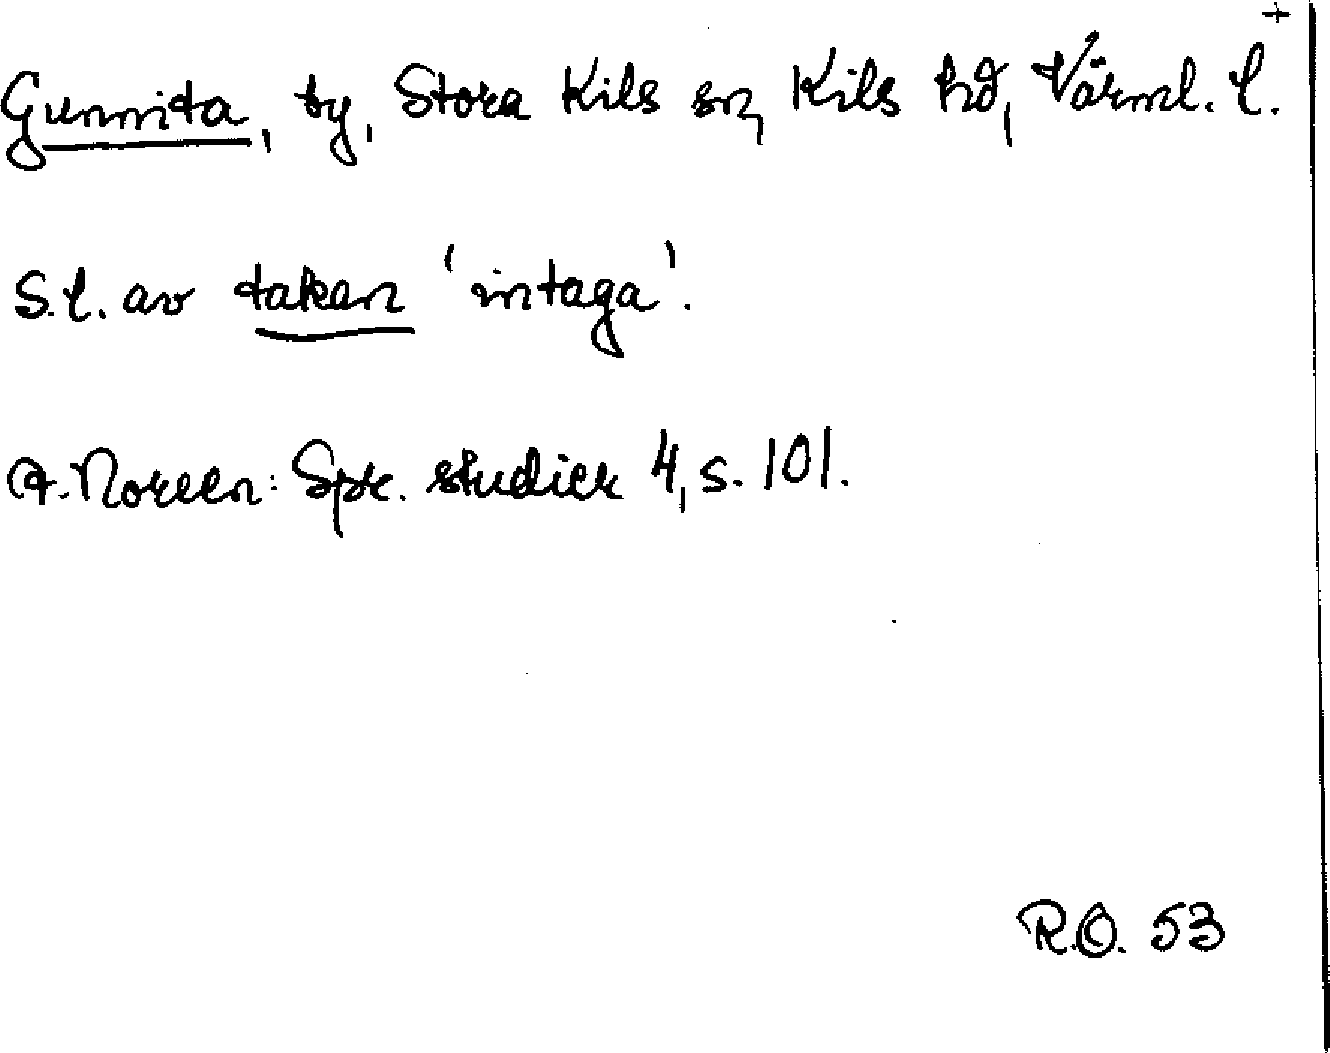 +
Gunnita, by, Stora Kils sn, Kils hd, Värml. l.
S.l. av takan 'intaga'.
A. Noreen: Spr. studier 4, s. 101.
R.O. 53